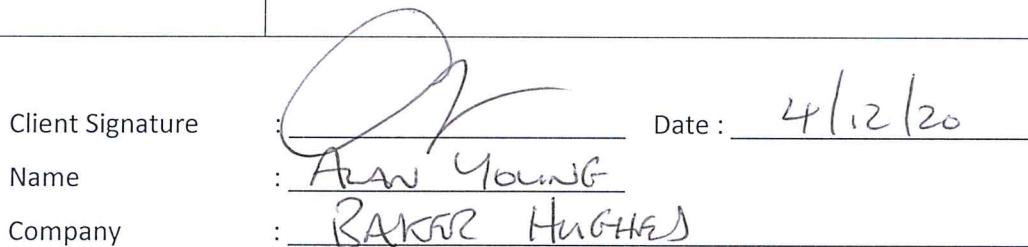 Client Signature : Date : 4/12/20
Name : ALAN YOUNG
Company : BAKER HUGHES